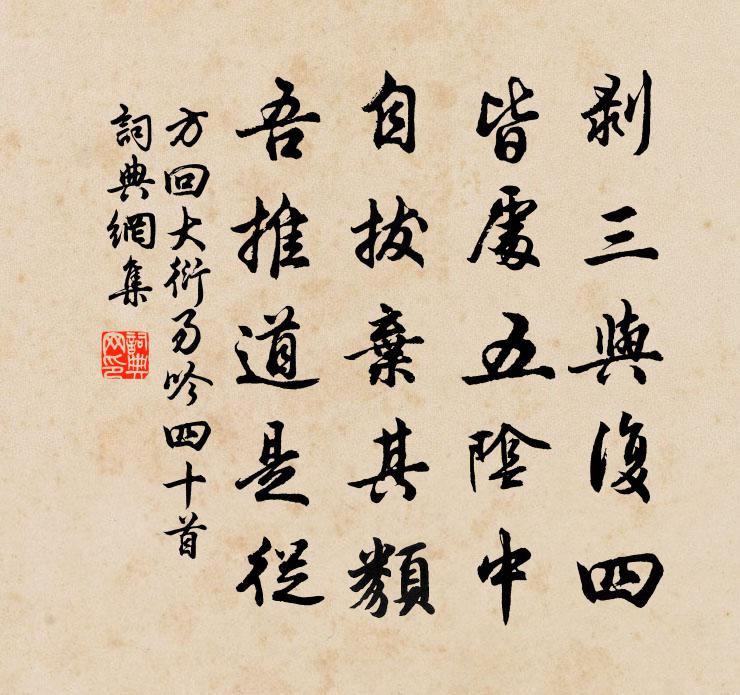 剝三與復四
皆處五陰中
自拔棄其類
吾推道是從
方回大衍易吟四十首
詞典網集
詞典網印